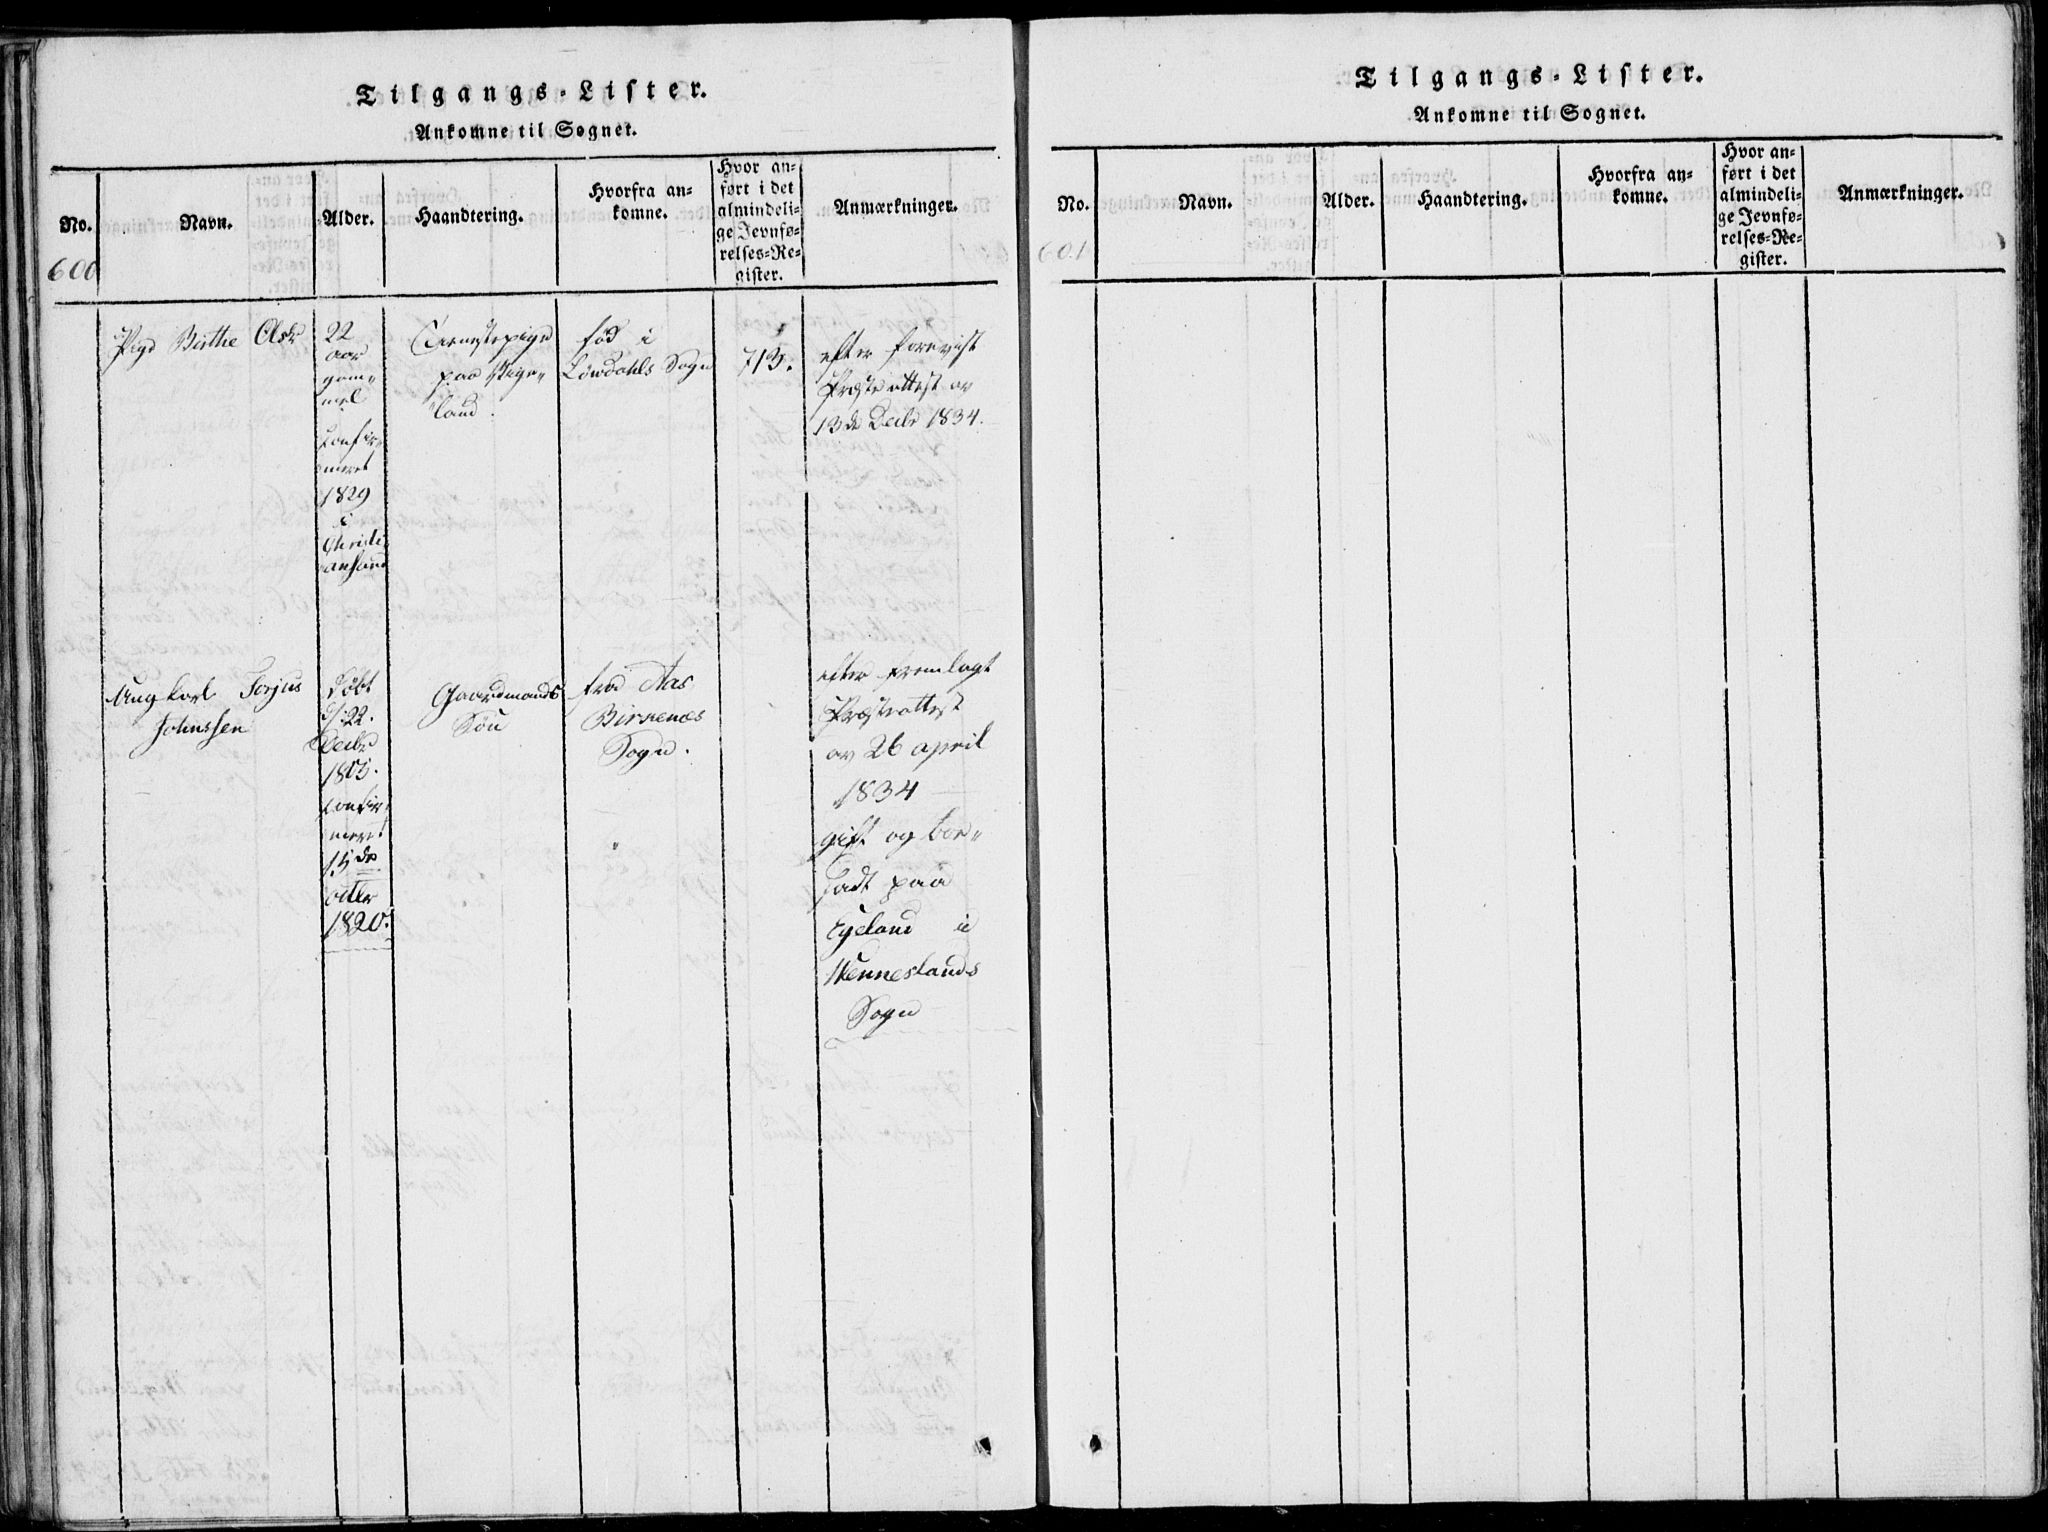 Tilgangs-Lister.
Ankomne til Sognet.
No.
Navn.
Alder.
Haandtering.
Hvorfra an-
komne.
Hvor an-
ført i det
almindeli-
ge Jevnfø-
relses-Re-
gister.
Anmærkninger.
600
Pige Birthe Olsdr
22
aar
gam-
mel
Confir-
meret
1829
i
Christi-
ansand
Tienestepige
paa Vige-
land.
fød i
Løvdahls Sogn
713.
efter foreviist
Præsteattest av
13de Decbr 1834.
Ung karl Terjus
Johnssen
døbt
d: 22.
Decbr
1805.
Confir-
meret
15de
octbr
1820.
Gaardmands
Søn
fra Aas
Birkenæs
Sogn.
efter fremlagt
Præsteattest
av 26 april
1834
gift og bo-
sadt paa
Eyeland i
Wenneslands
Sogn
Tilgangs-Lister.
Ankomne til Sognet.
No.
Navn.
Alder.
Haandtering.
Hvorfra an-
komne.
Hvor an-
ført i det
almindeli-
ge Jevnfø-
relses-Re-
gister.
Anmærkninger.
601